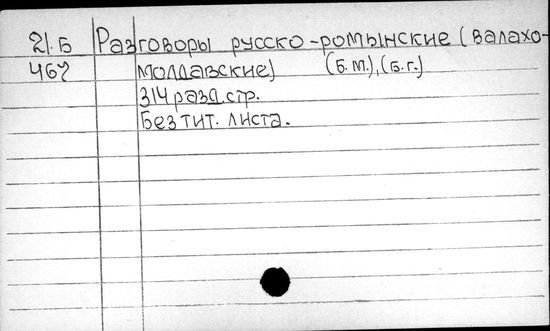 21.Б Разговоры русско-ромынские (валахо-
467 молдавские) (Б.М.), (Б.г.)
314 разд. стр.
Без тит. листа.